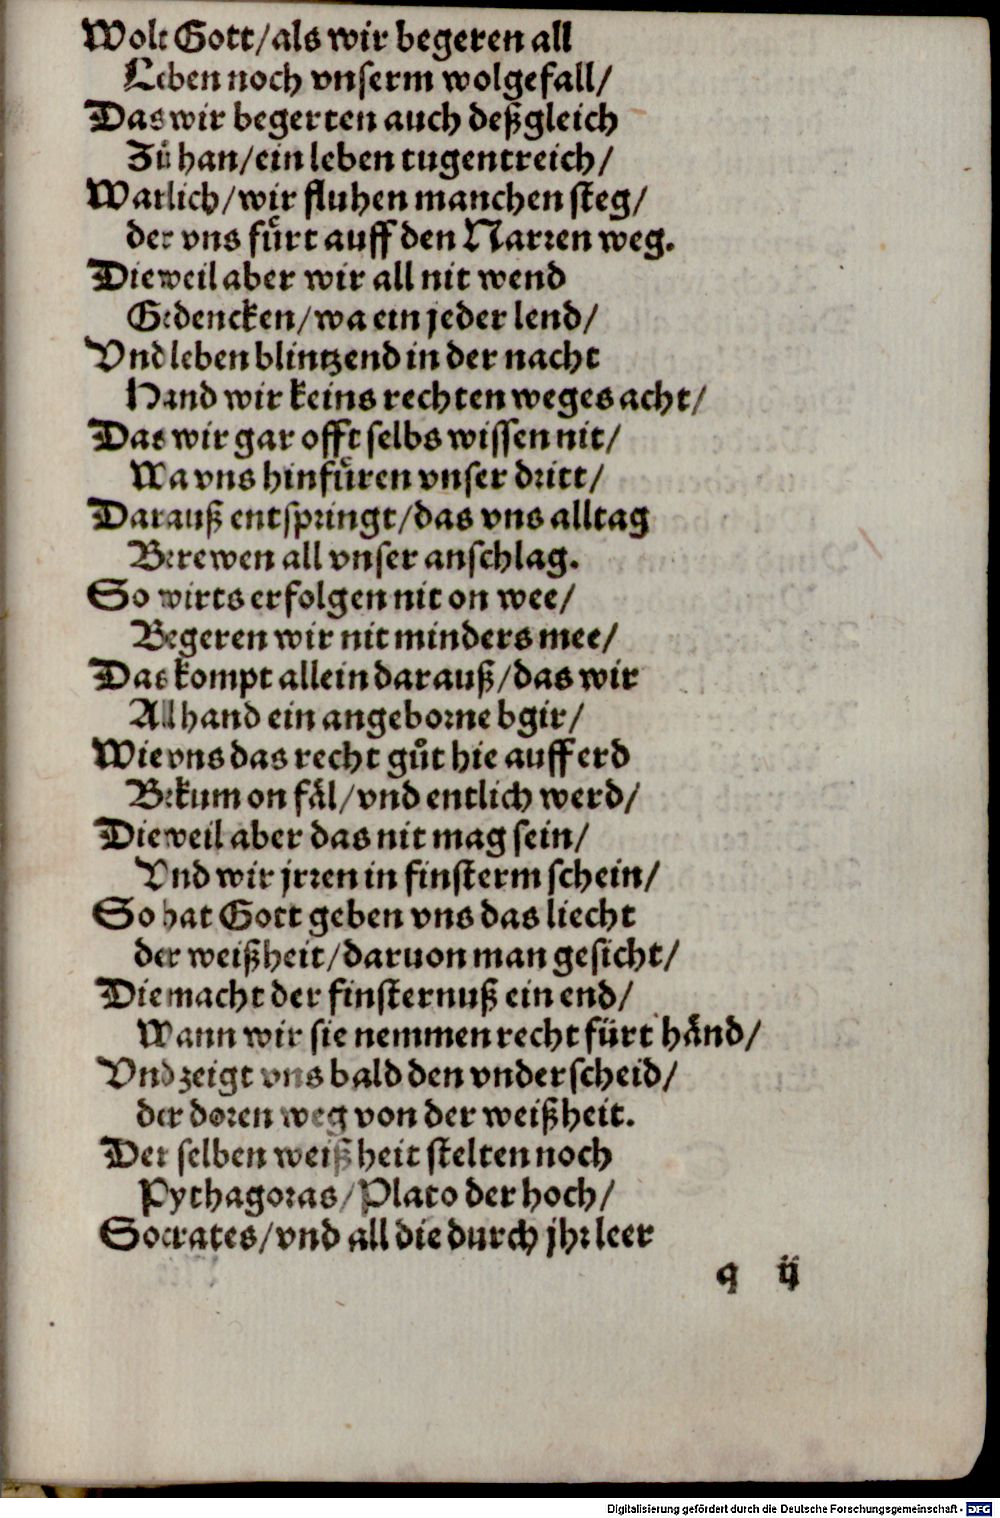 Wolt Gott/als wir begeren all
Leben noch vnserm wolgefall/
Das wir begerten auch deßgleich
Zů han/ein leben tugentreich/
Warlich/wir fluhen manchen steg/
der vns fuͤrt auff den Narren weg.
Dieweil aber wir all nit wend
Gedencken/wa ein jeder lend/
Vnd leben blintzend in der nacht
Hand wir keins rechten weges acht/
Das wir gar offt selbs wissen nit/
Wa vns hinfuͤren vnser dritt/
Darauß entspringt/das vns alltag
Berewen all vnser anschlag.
So wirts erfolgen nit on wee/
Begeren wir nit minders mee/
Das kompt allein darauß/das wir
All hand ein angeborne bgir/
Wie vns das recht gůt hie auff erd
Bekum on faͤl/vnd entlich werd/
Dieweil aber das nit mag sein/
Vnd wir jrren in finsterm schein/
So hat Gott geben vns das liecht
der weißheit/daruon man gesicht/
Die macht der finsternuß ein end/
Wann wir sie nemmen recht fürt haͤnd/
Vnd zeigt vns bald den vnderscheid/
der doren weg von der weißheit.
Der selben weißheit stelten noch
Pythagoras/Plato der hoch/
Socrates/vnd all die durch jhr leer
q ij
Digitalisierung gefördert durch die Deutsche Forschungsgemeinschaft - DFG